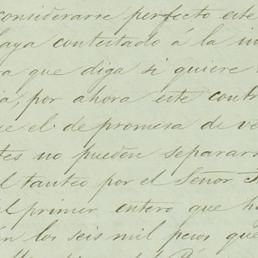 considerarse perfecto este
haya contestado á la in
ra que diga si quiere
ia, por ahora este contr
ue el de promesa de ve
tes no pueden separars
l tanteo por el Señor
l primer entero que h
n los seis mil pesos que